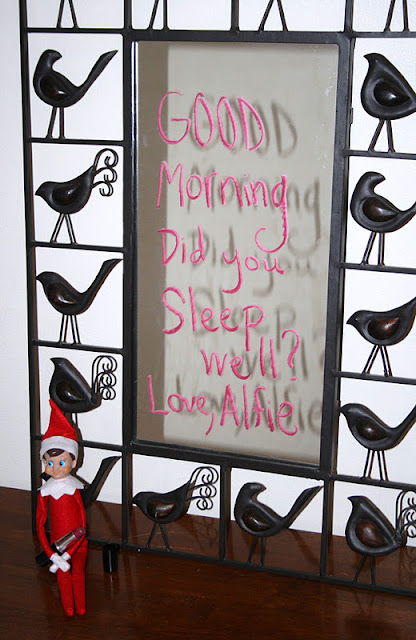 GOOD
Morning
Did you
Sleep
well?
Love, Alfie